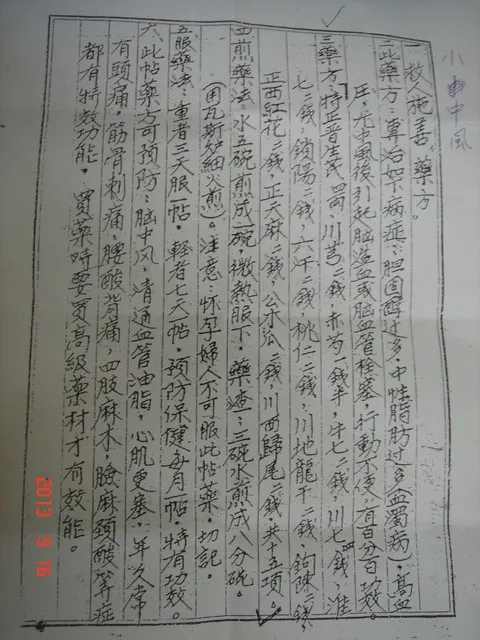 小中风
一救人施善。藥方。
二此藥方：專治如下病症：胆固醇过多、中性脂肪过多血濁病)，高血
压，尤中風後引起脑溢血或脑血管栓塞，行動不便，有百分百功效。
三藥方：特正晋耆四兩，川芎二錢，赤芍一錢半，牛七二錢，川七錢，淮
七二錢，鎖陽二錢，六汗二錢，桃仁二錢，川地龍干二錢，鉤陳二錢，
正西紅花二錢，正天麻二錢，公木瓜二錢，川西歸尾二錢，共十五項。
四煎藥法：水五碗煎成一碗，微熱服下。藥渣：三碗水煎成八分碗。
(用瓦斯炉細火煎)。注意：怀孕婦人不可服此帖藥。切記。
五服藥法：重者三天服一帖。軽者七天帖。預防保健每月一帖。特有功效。
六、此帖藥方可預防：脑中风，清通血管油脂，心肌更塞，年久常
有頭痛，筋骨刺痛，腰酸背痛，四肢麻木，臉麻頸酸等症
都有特效功能。買藥時要買高級藥材才有效能。
2013 9 16